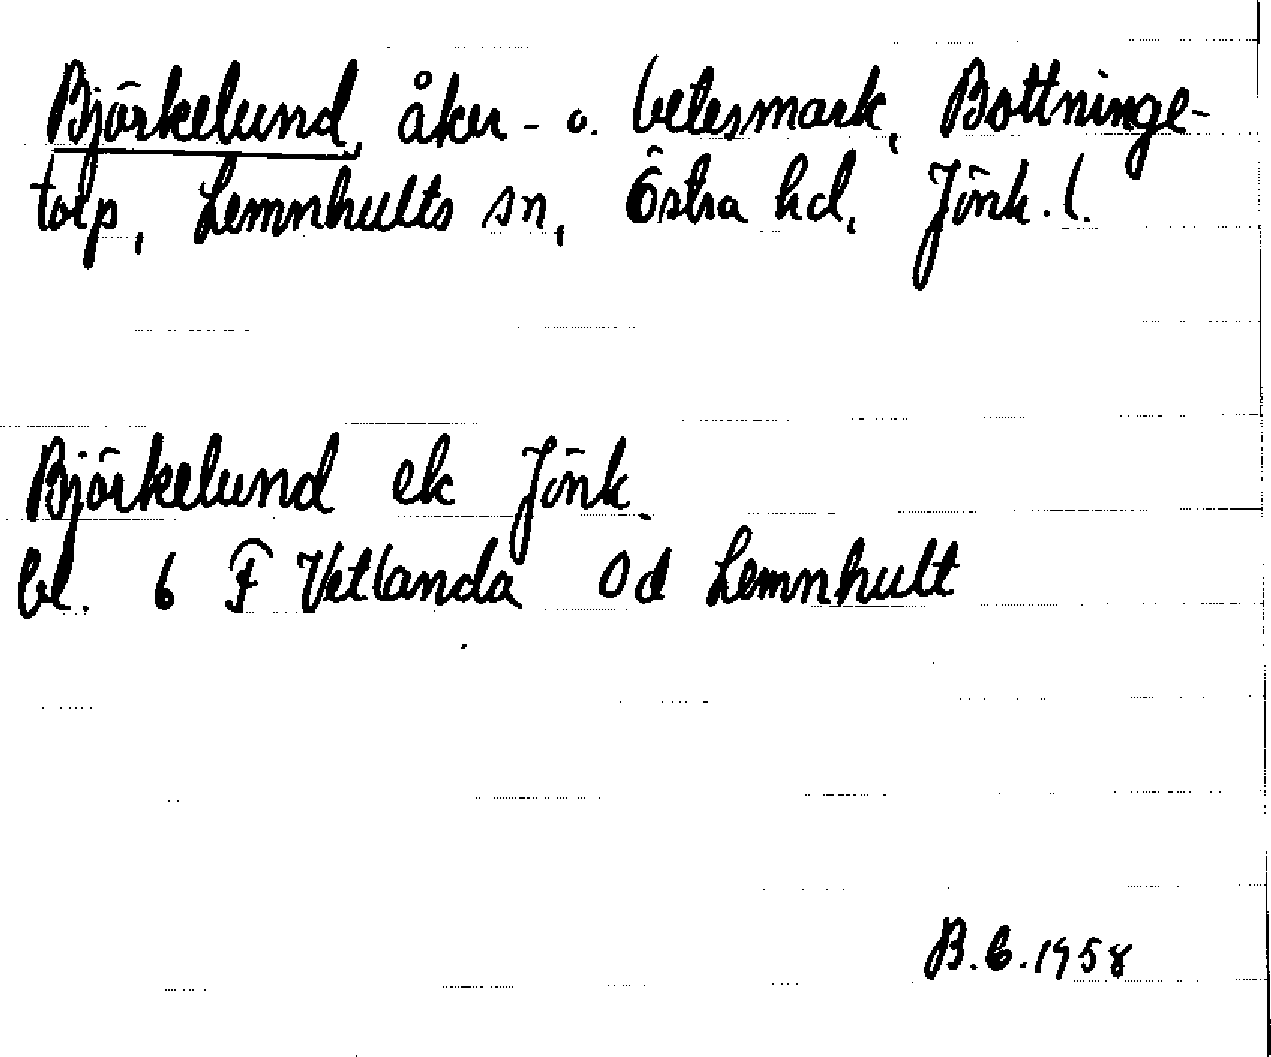 Björkelund, åker- o. betesmark, Bottninge-
torp, Lemnhults sn, Östra hd, Jönk. l.
Björkelund ek Jönk.
bl. 6 F Vetlanda 0 d Lemnhult
B.E.1958